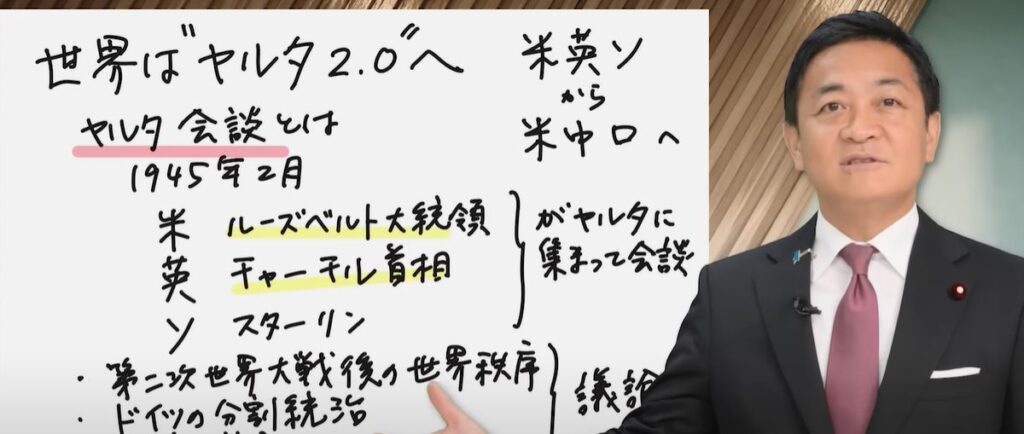 世界は"ヤルタ2.0"へ
ヤルタ会談とは
1945年2月
米 ルーズベルト大統領
英 チャーチル首相
ソ スターリン
がヤルタに
集まって会談
・第二次世界大戦後の世界秩序
・ドイツの分割統治
議論
米英ソ
から
米中ロへ